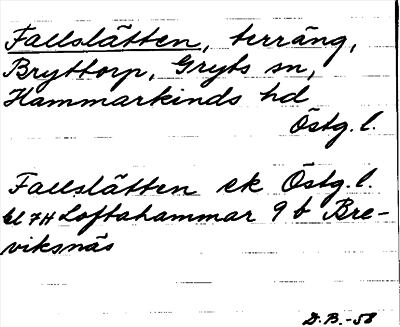 Fallslätten, terräng,
Bryttorp, Gryts sn,
Hammarkinds hd
Östg. l.
Fallslätten ek Östg. l.
bl 7H Loftahammar 9 b Bre-
viksnäs
D.B.-58